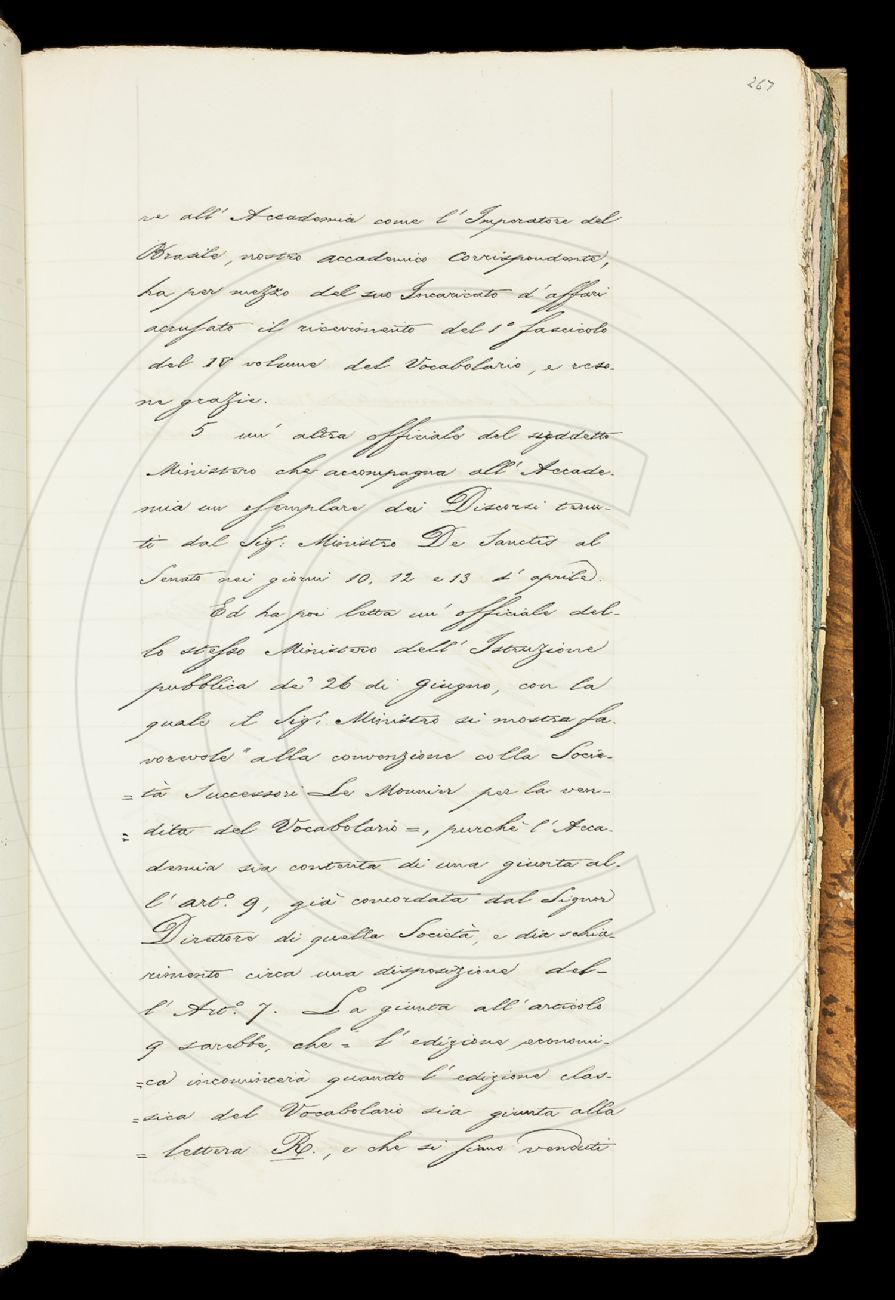 267
re all' Accademia come l'Imperatore del
Brasile, nostro accademico Corrispondente,
ha per mezzo del suo Incaricato d'affari
accusato il ricevimento del 1° fascicolo
del IV volume del Vocabolario, e reso-
ne grazie.
5 un' altra officiale del suddetto
Ministero che accompagna all' Accade-
mia un esemplare dei Discorsi tenu-
ti dal Sig: Ministro De Sanctis al
Senato nei giorni 10, 12 e 13 d' aprile.
Ed ha poi letta un' officiale del-
lo stesso Ministero dell' Istruzione
pubblica de' 26 di Giugno, con la
quale il Sig: Ministro si mostra fa-
vorevole " alla convenzione colla Socie-
= tà Successori Le Monnier per la ven-
" dita del Vocabolario =, purchè l' Acca-
demia sia contenta di una giunta al-
l' art.° 9, già concordata dal Signor
Direttore di quella Società, e dia schia-
rimento circa una disposizione del-
l' Art.° 7. La giunta all' articolo
9 sarebbe, che = l' edizione economi-
= ca incomincerà quando l' edizione clas-
= sica del Vocabolario sia giunta alla
= lettera R., e che si siano venduti